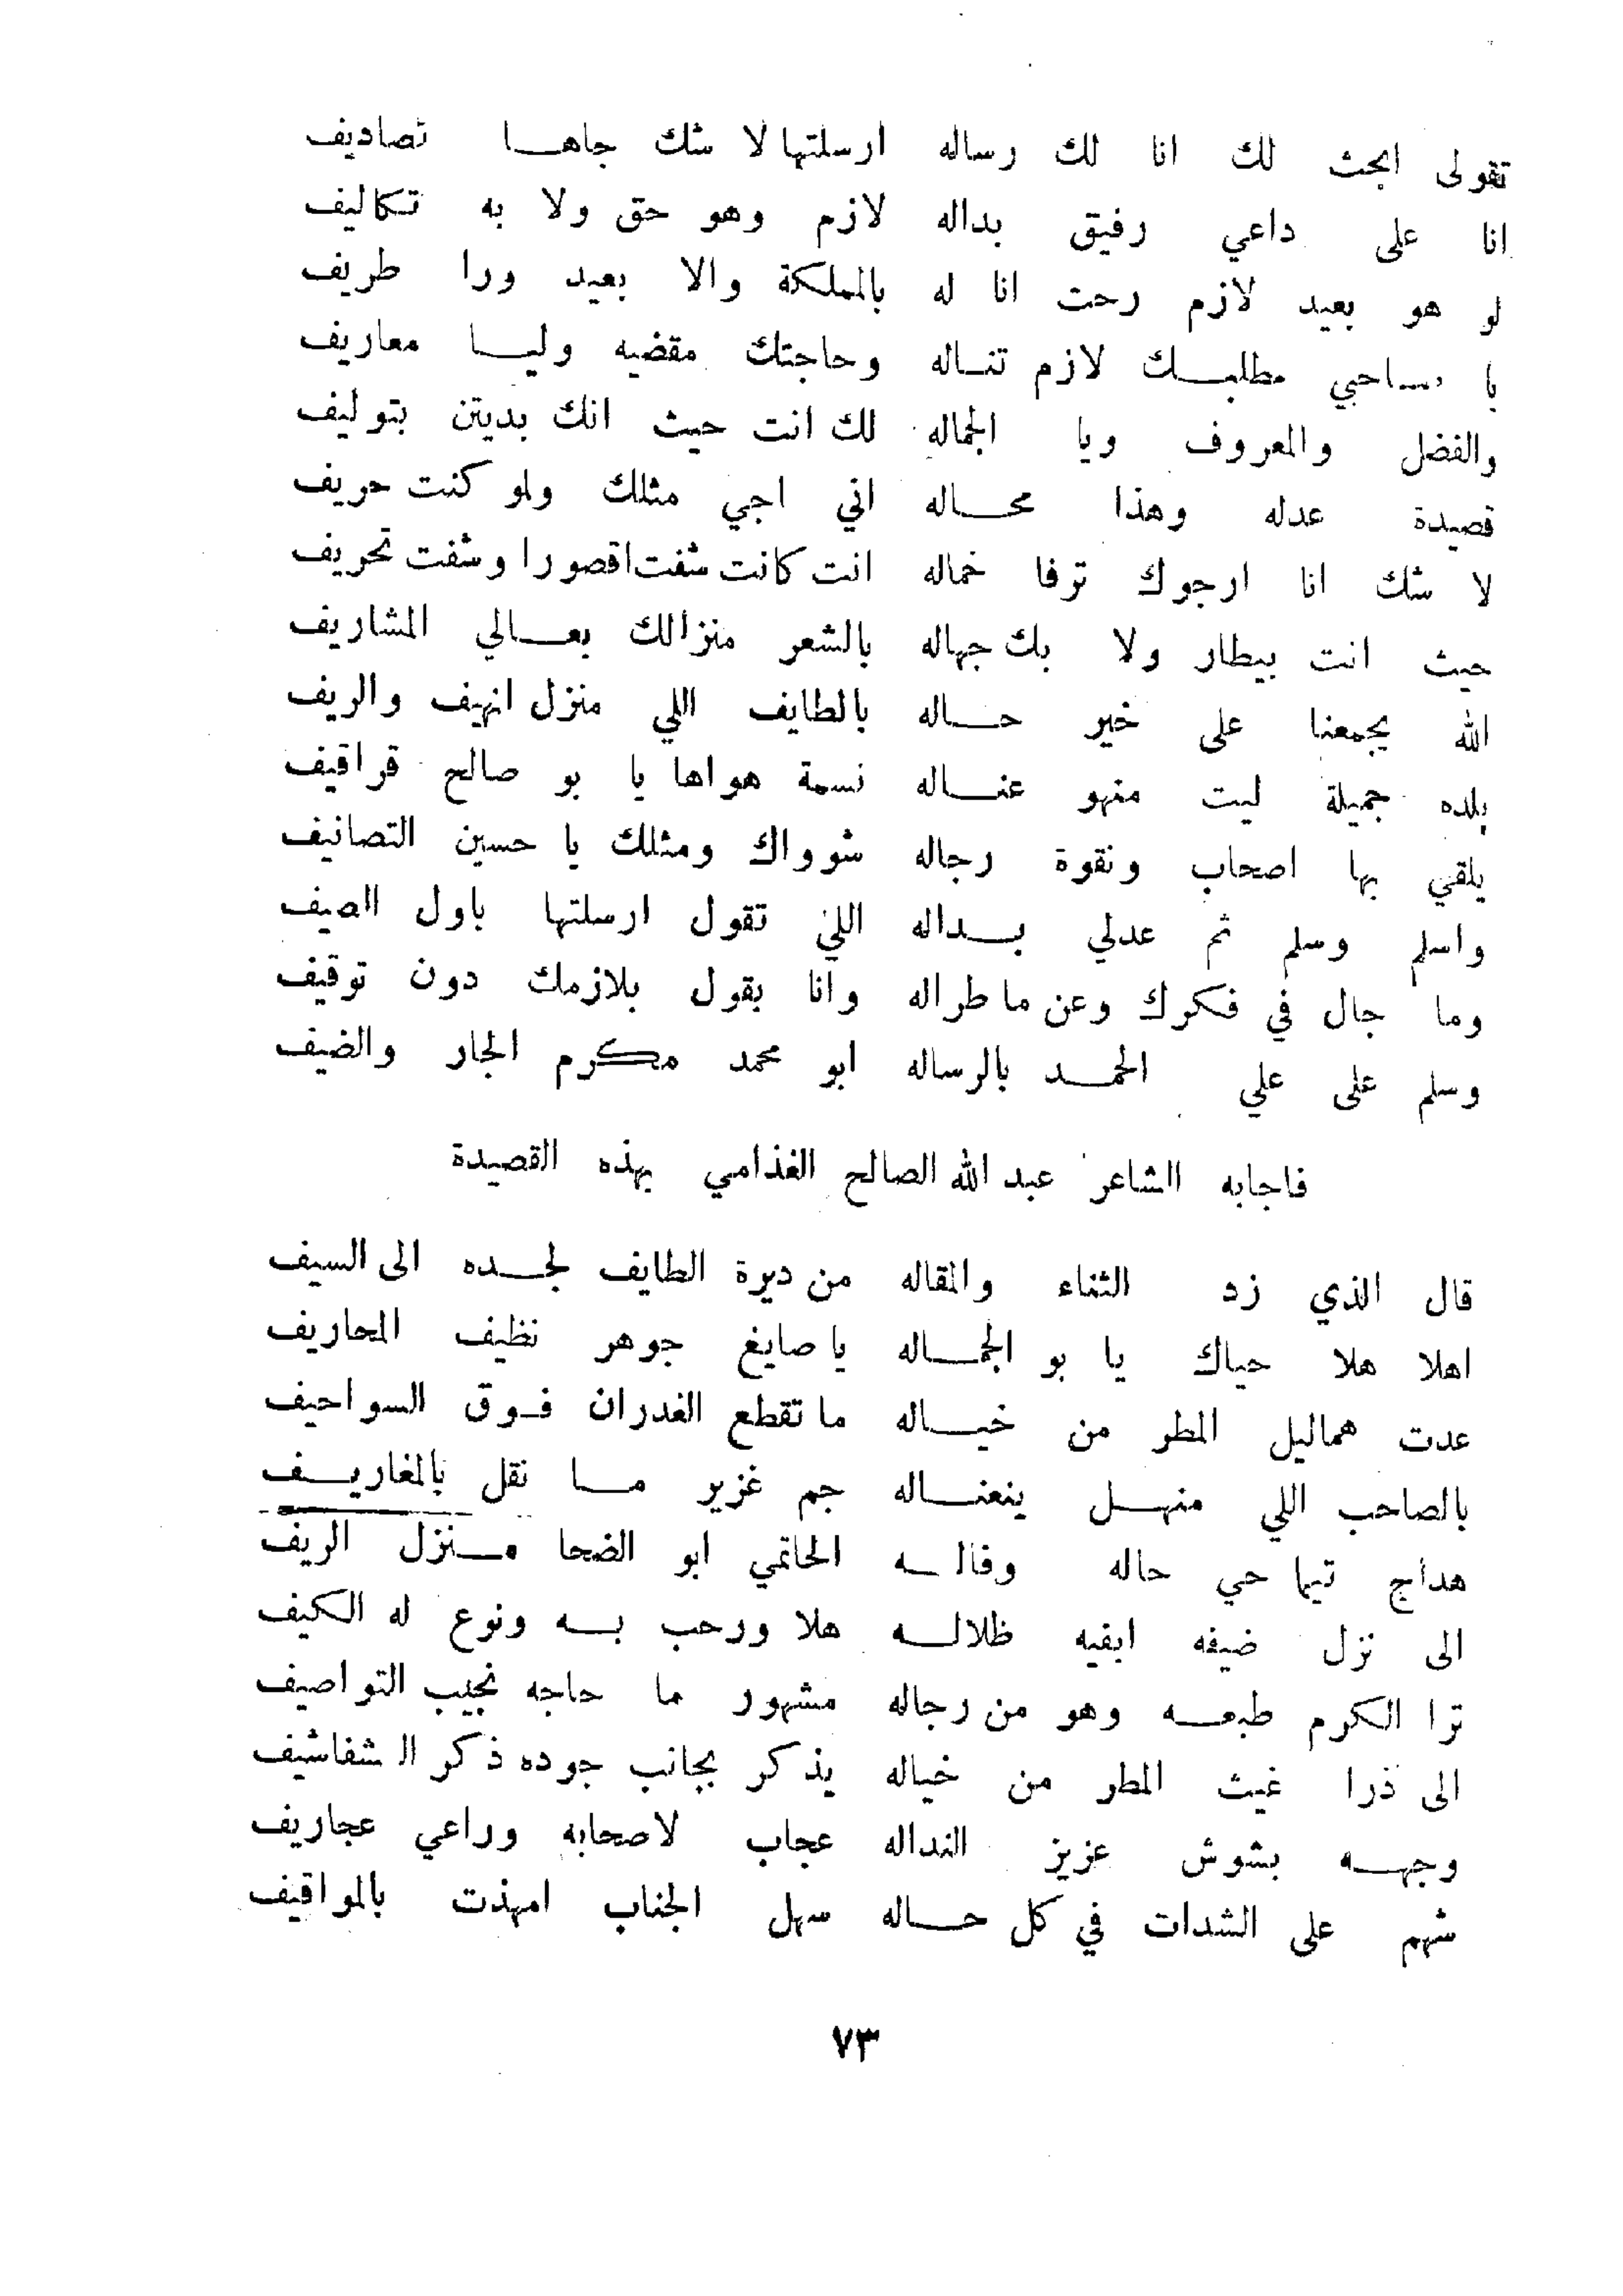 تقولى ابحث لك انا لك رساله ارسلتها لا شك جاهـا تصاديف
انا على داعي رفيق بداله لازم وهو حق ولا به تكاليف
لو هو بعيد لازم رحت انا له بالمملكة والا بعيد ورا طريف
يا صاحبي مطلبـك لازم تنـاله وحاجتك مقضيه وليـا معاريف
والفضل والمعروف ويا الجماله لك انت حيث انك بديتن بتوليف
قصيدة عدله وهذا محـاله اني اجي مثلك ولو كنت حريف
لا شك انا ارجوك ترفا خماله انت كانت شفت اقصورا وشفت تحريف
حيث انت بيطار ولا بك جهاله بالشعر منزالك بعـالي المشاريف
الله يجمعنا على خير حـاله بالطايف اللي منزل انهيف والريف
بلده جميلة ليت منهو عنـاله نسمة هواها يا بو صالح قراقيف
يلقي بها اصحاب ونقوة رجاله شوواك ومثلك يا حسين التصانيف
واسلم وسلم ثم عدلي بـداله اللي تقول ارسلتها باول الصيف
وما جال في فكرك وعن ما طراله وانا بقول بلازمك دون توقيف
وسلم على علي الحمـد بالرساله ابو محمد مكرم الجار والضيف
فاجابه الشاعر عبد الله الصالح الغذامي بهذه القصيدة
قال الذي زد الثناء والمقاله من ديرة الطايف لجـده الى السيف
اهلا هلا حياك يا بو الجمـاله يا صايغ جوهر نظيف المحاريف
عدت هماليل المطر من خيـاله ما تقطع الغدران فـوق السواحيف
بالصاحب اللي منهـل ينعنـاله جم غزير مـا نقل بالمغاريـف
هداج تيما حي حاله وفالـه الحاتمي ابو الضحا مـنزل الريف
الى نزل ضيفه ابفيه ظلالـه هلا ورحب بـه ونوع له الكيف
ترا الكرم طبعـه وهو من رجاله مشهور ما حاجه نجيب التواصيف
الى ذرا غيث المطر من خياله يذكر بجانب جوده ذكر الشفاشيف
وجهـه بشوش عزيز النداله عجاب لاصحابه وراعي عجاريف
شهم على الشدات في كل حـاله سهل الجناب امهذت بالمواقيف
٧٣